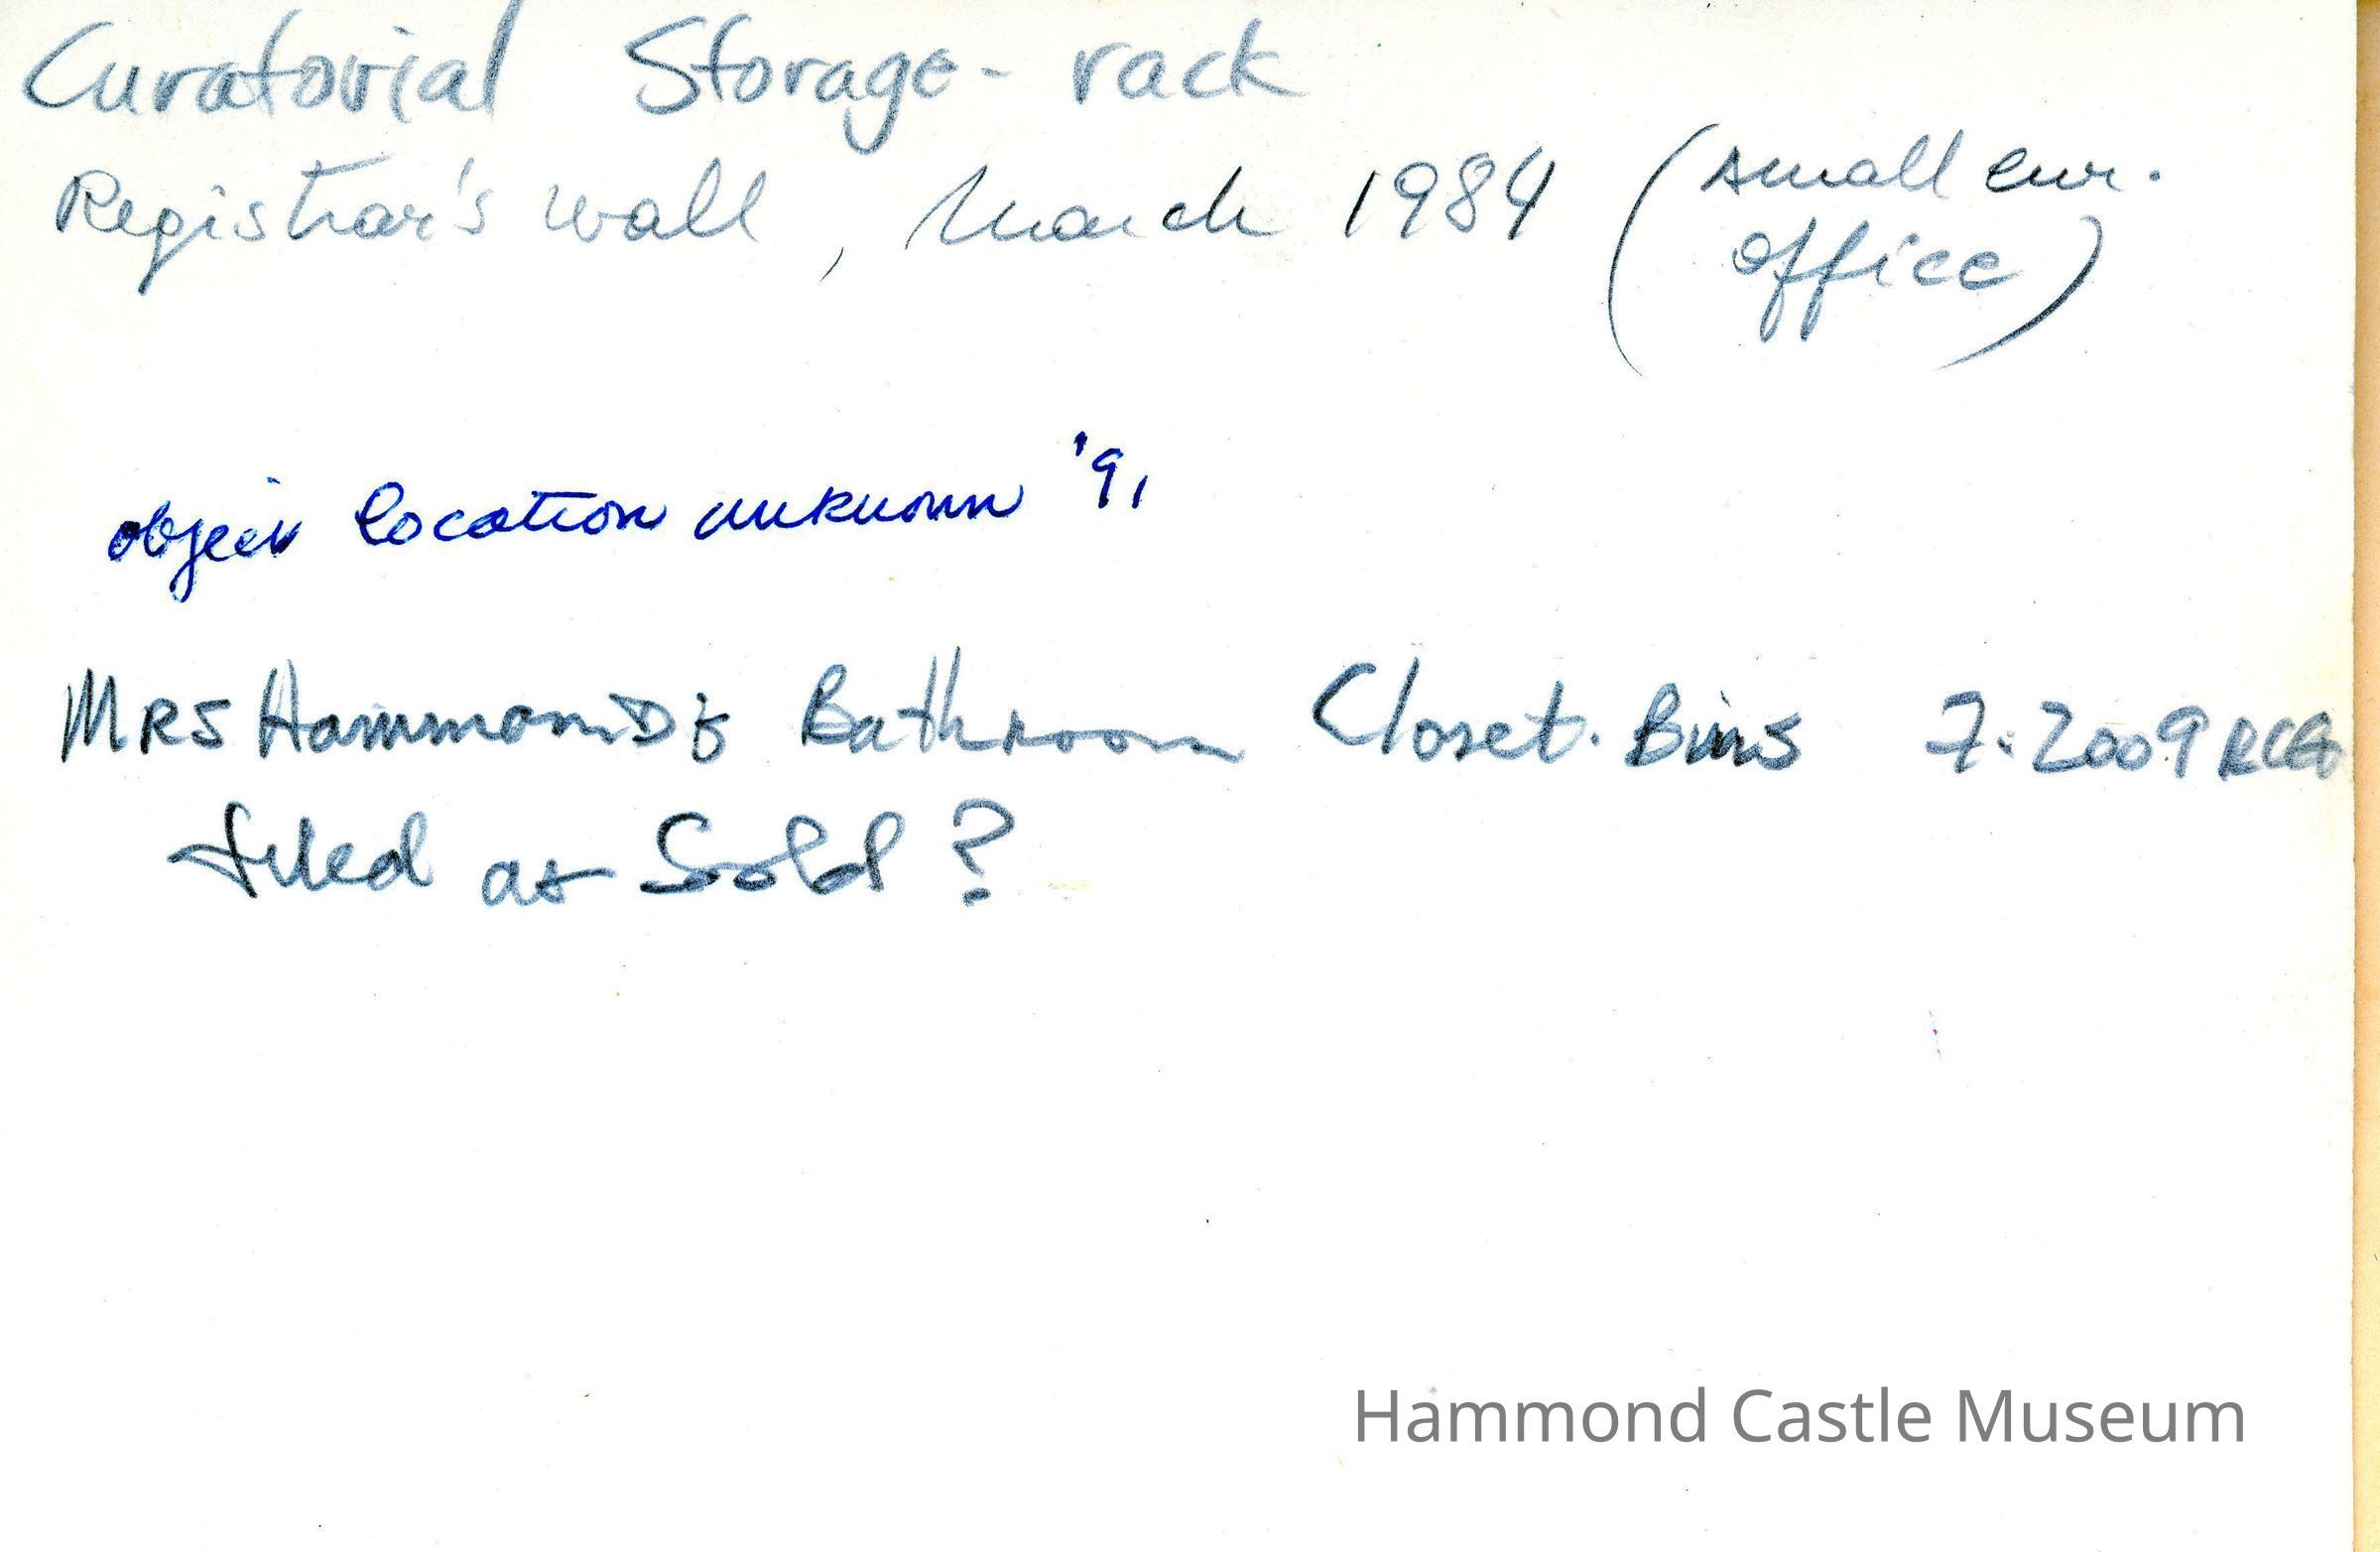 Curatorial Storage - rack
Registrar's wall, March 1984 (small cur.
office)
object location unknown '91
MRS HammonD's Bathroom Closet. Bins 7.2009
filed as Sold?
Hammond Castle Museum